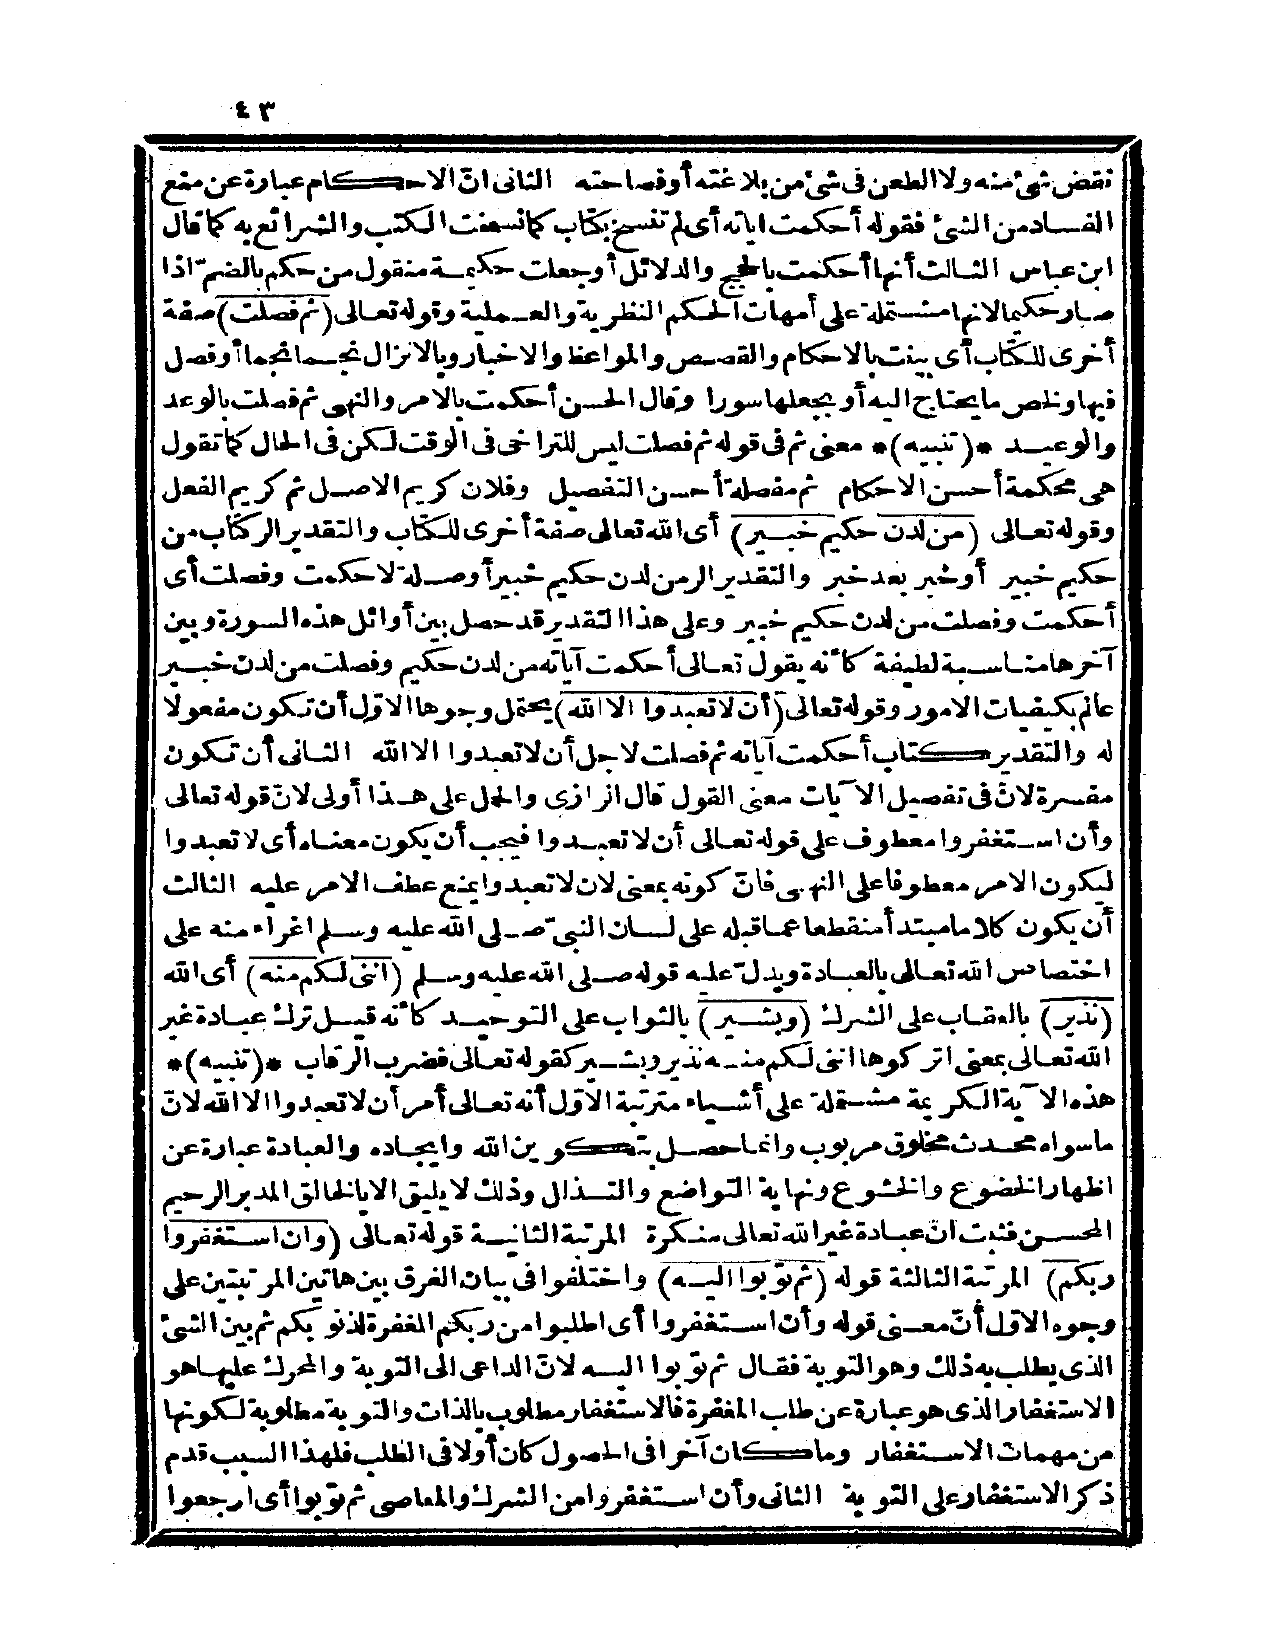 ٤٣
نقض شئ منه ولا الطعن فى شئ من بلاغته أو فصاحته الثانى انّ الاحكام عبارة عن منع
الفساد من الشئ فقوله أحكمت اياته أى لم تنسخ بكتاب كما نسخت الكتب والشرائع به كما قال
ابن عباس الثالث أنها أحكمت بالحجج والدلائل أو جعلت حكيمة منقول من حكم بالضم اذا
صار حكيما لانها مشتملة على أمهات الحكم النظرية والعملية وقوله تعالى (ثم فصلت) صفة
أخرى للكتاب أى بينت بالاحكام والقصص والمواعظ والاخبار وبالانزال نجما نجما أو فصل
فيها ولخص ما يحتاج اليه أو بجعلها سورا وقال الحسن أحكمت بالامر والنهى ثم فصلت بالوعد
والوعيد *(تنبيه)* معنى ثم فى قوله ثم فصلت ليس للتراخى فى الوقت لكن فى الحال كما تقول
هى محكمة أحسن الاحكام ثم مفصلة أحسن التفصيل وفلان كريم الاصل ثم كريم الفعل
وقوله تعالى (من لدن حكيم خبير) أى الله تعالى صفة أخرى للكتاب والتقدير الر كتاب من
حكيم خبير أو خبر بعد خبر والتقدير الر من لدن حكيم خبير أو صلة لاحكمت وفصلت أى
أحكمت وفصلت من لدن حكيم خبير وعلى هذا التقدير قد حصل بين أوائل هذه السورة وبين
آخرها مناسبة لطيفة كأنه يقول تعالى أحكمت آياته من لدن حكيم وفصلت من لدن خبير
عالم بكيفيات الامور وقوله تعالى (أن لا تعبدوا الا الله) يحتمل وجوها الاوّل أن تكون مفعولا
له والتقدير كتاب أحكمت آياته ثم فصلت لاجل أن لا تعبدوا الا الله الثانى أن تكون
مفسرة لانّ فى تفصيل الآيات معنى القول قال الرازى والحمل على هذا أولى لانّ قوله تعالى
وأن استغفروا معطوف على قوله تعالى أن لا تعبدوا فيجب أن يكون معناه أى لا تعبدوا
ليكون الامر معطوفا على النهى فانّ كونه بمعنى لان لا تعبدوا يمنع عطف الامر عليه الثالث
أن يكون كلاما مبتدأ منقطعا عما قبله على لسان النبىّ صلى الله عليه وسلم اغراء منه على
اختصاص الله تعالى بالعبادة ويدلّ عليه قوله صلى الله عليه وسلم (اننى لكم منه) أى الله
(نذير) بالعقاب على الشرك (وبشير) بالثواب على التوحيد كأنه قيل ترك عبادة غير
الله تعالى بمعنى اتركوها اننى لكم منه نذير وبشير كقوله تعالى فضرب الرقاب *(تنبيه)*
هذه الآية الكريمة مشتملة على أشياء مترتبة الاوّل أنه تعالى أمر أن لا تعبدوا الا الله لانّ
ما سواه محدث مخلوق مربوب وانما حصل بتكوين الله وايجاده والعبادة عبارة عن
اظهار الخضوع والخشوع ونهاية التواضع والتذلل وذلك لا يليق الا بالخالق المدبر الرحيم
المحسن فثبت انّ عبادة غير الله تعالى منكرة المرتبة الثانية قوله تعالى (وان استغفروا
ربكم) المرتبة الثالثة قوله (ثم توبوا اليه) واختلفوا فى بيان الفرق بين هاتين المرتبتين على
وجوه الاوّل أنّ معنى قوله وأن استغفروا أى اطلبوا من ربكم المغفرة لذنوبكم ثم بين الشئ
الذى يطلب به ذلك وهو التوبة فقال ثم توبوا اليه لانّ الداعى الى التوبة والمحرك عليها هو
الاستغفار الذى هو عبارة عن طلب المغفرة فالاستغفار مطلوب بالذات والتوبة مطلوبة لكونها
من مهمات الاستغفار وما كان آخرا فى الحصول كان أولا فى الطلب فلهذا السبب قدم
ذكر الاستغفار على التوبة الثانى وأن استغفروا من الشرك والمعاصى ثم توبوا أى ارجعوا